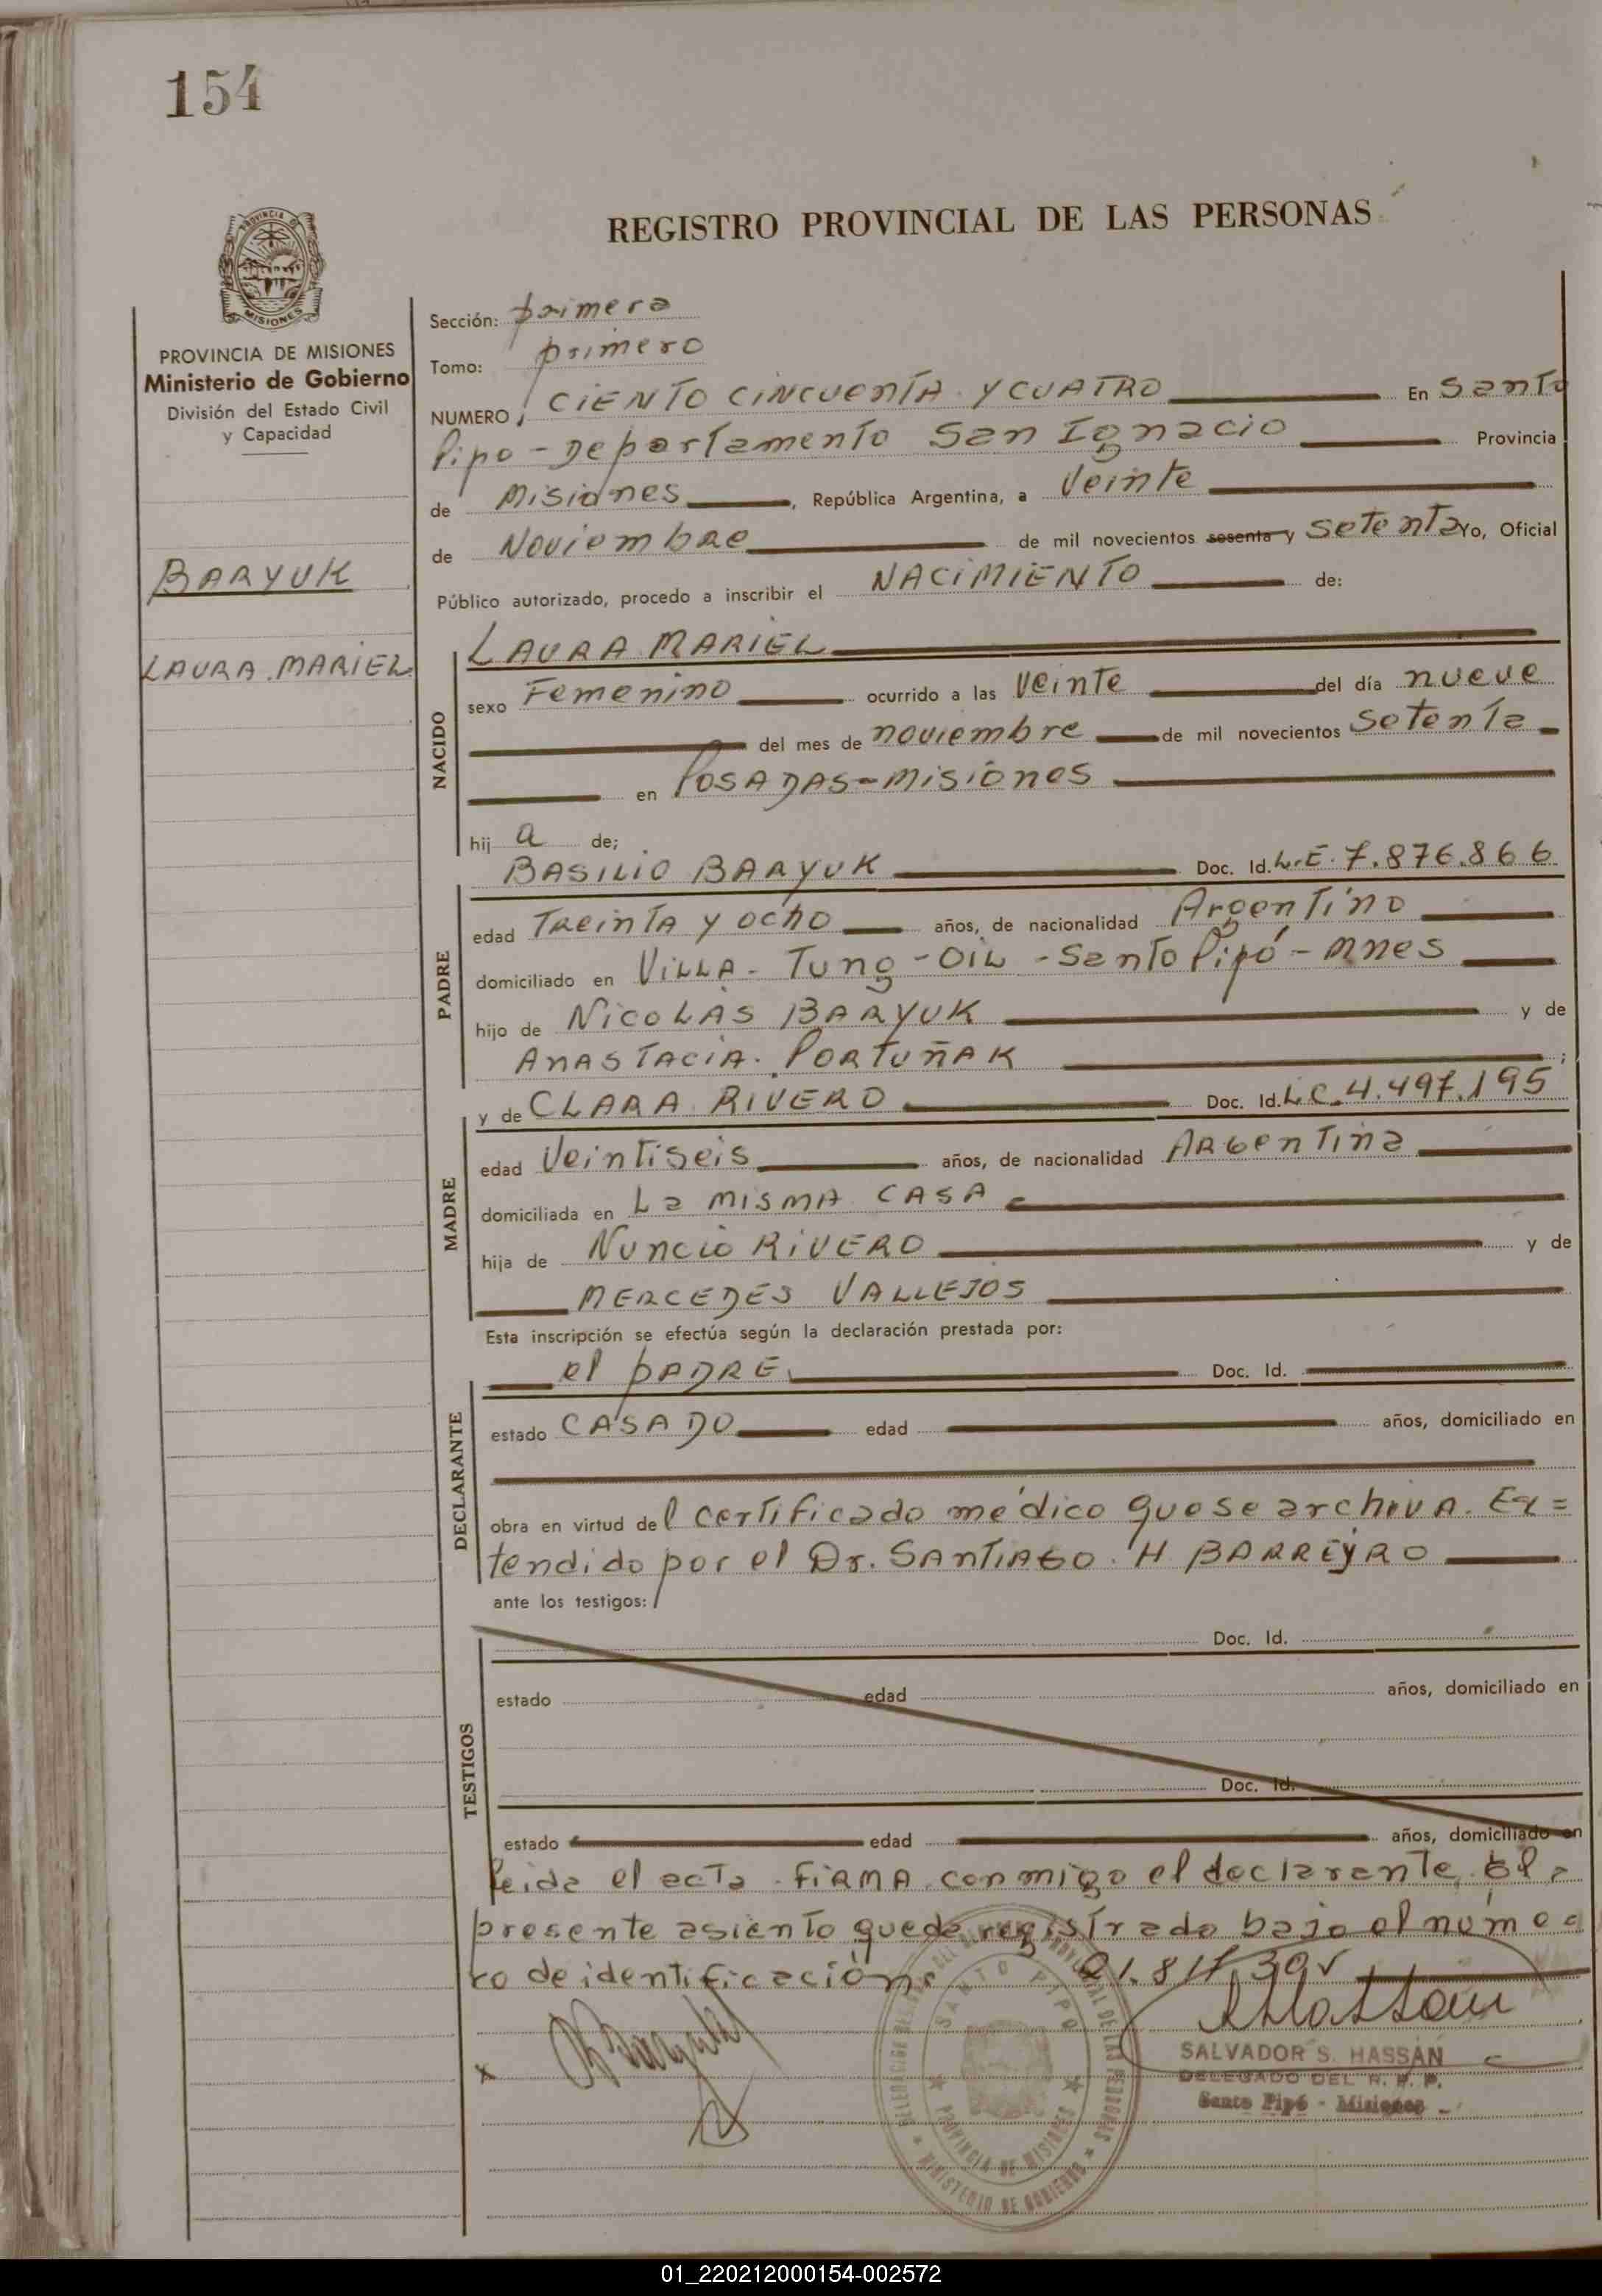 154
PROVINCIA DE MISIONES
Ministerio de Gobierno
División del Estado Civil
y Capacidad
BARYUK
LAURA MARIEL
REGISTRO PROVINCIAL DE LAS PERSONAS
Sección: primera
Tomo: primero
NUMERO CIENTO CINCUENTA Y CUATRO En Santo
Pipo - Departamento San Ignacio Provincia
de Misiones, República Argentina, a Veinte
de Noviembre de mil novecientos sesenta y setenta Yo, Oficial
Público autorizado, procedo a inscribir el NACIMIENTO de:
NACIDO
LAURA MARIEL
sexo Femenino ocurrido a las Veinte del día nueve
del mes de noviembre de mil novecientos setenta
en POSADAS - MISIONES
hij a de;
PADRE
BASILIO BARYUK Doc. Id. L.E. 7.876.866
edad TREINTA Y OCHO años, de nacionalidad Argentino
domiciliado en VILLA - Tung - OIL - Santo Pipó - Mnes
hijo de NICOLÁS BARYUK y de
ANASTACIA PORTUÑAK ;
MADRE
y de CLARA RIVERO Doc. Id. L.C. 4.497.195
edad Veintiseis años, de nacionalidad ARGENTINA
domiciliada en La MISMA CASA
hija de NUNCIO RIVERO y de
MERCEDES VALLEJOS
Esta inscripción se efectúa según la declaración prestada por:
DECLARANTE
el PADRE Doc. Id.
estado CASADO edad años, domiciliado en
obra en virtud del certificado médico que se archiva. Ex=
tendido por el Dr. SANTIAGO H BARREYRO
ante los testigos:
TESTIGOS
Doc. Id.
estado edad años, domiciliado en
Doc. Id.
estado edad años, domiciliado en
leida el acta FIRMA conmigo el declarante. El
presente asiento queda registrado bajo el núme
ro de identificación
SANTO PIPO
PROVINCIA DE MISIONES
MINISTERIO DE GOBIERNO
SALVADOR S. HASSAN
DELEGADO DEL R. P. P.
Santo Pipó - Misiones
01_220212000154-002572